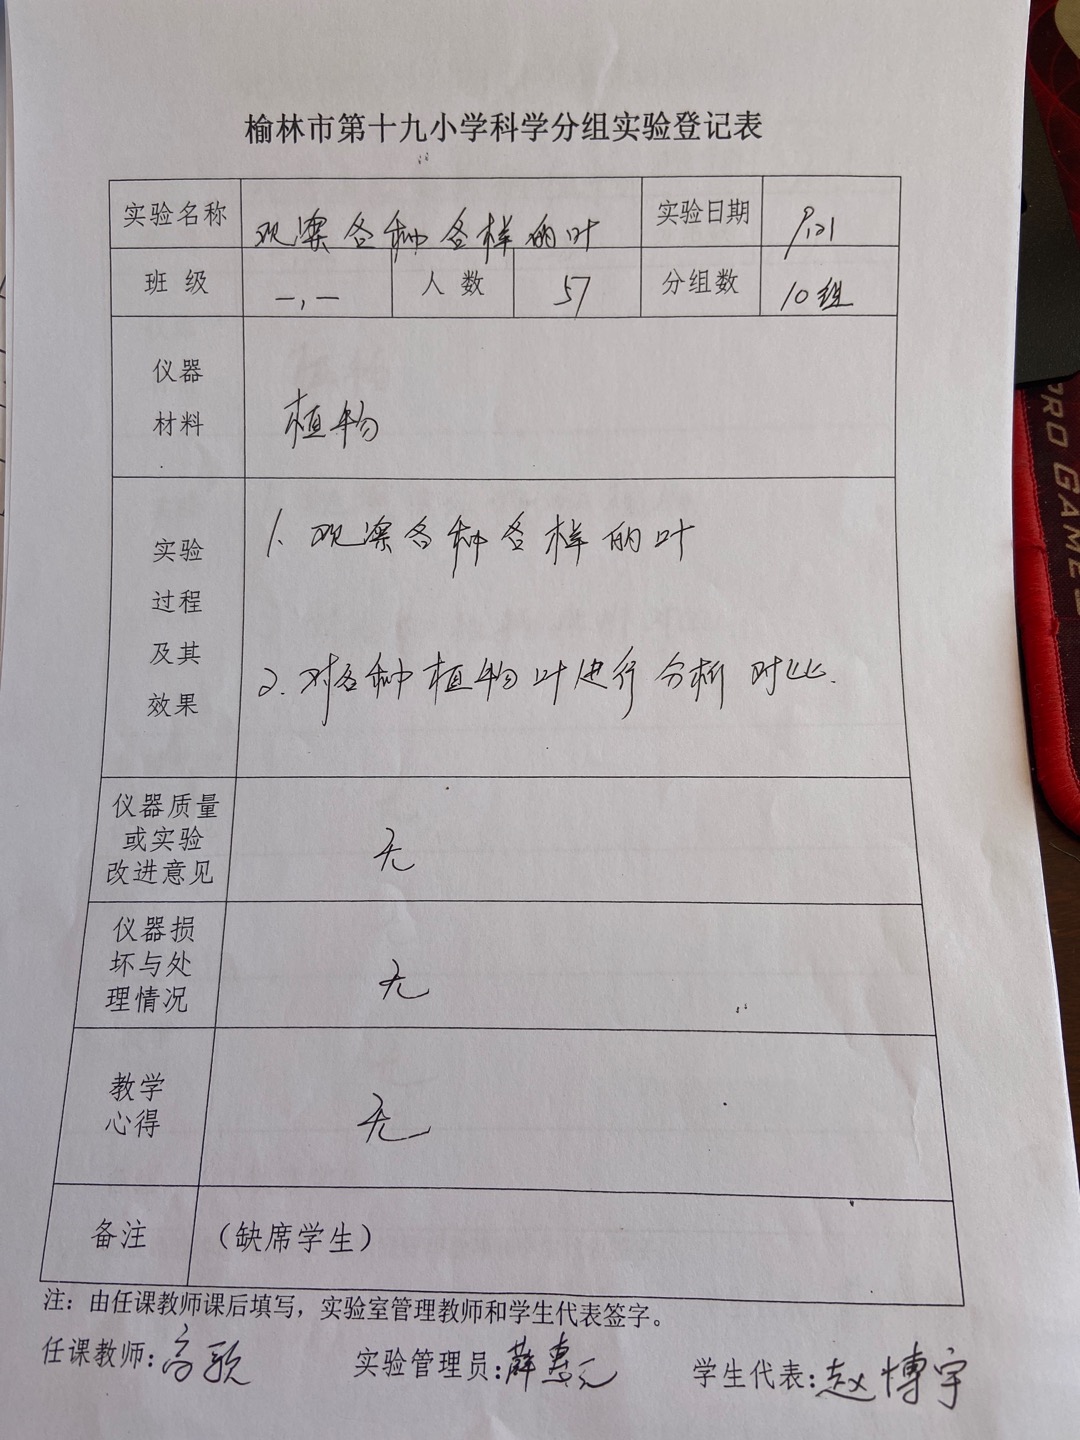 榆林市第十九小学科学分组实验登记表
实验名称 观察各种各样的叶 实验日期
班级 一,一 人数 57 分组数 10组
仪器
材料
植物
实验
过程
及其
效果
1. 观察各种各样的叶
2. 对各种植物叶进行分析对比.
仪器质量
或实验
改进意见
无
仪器损
坏与处
理情况
无
教学
心得
无
备注 (缺席学生)
注：由任课教师课后填写，实验室管理教师和学生代表签字。
任课教师:高歌 实验管理员:薛惠元 学生代表:赵博宇
PRO GAME